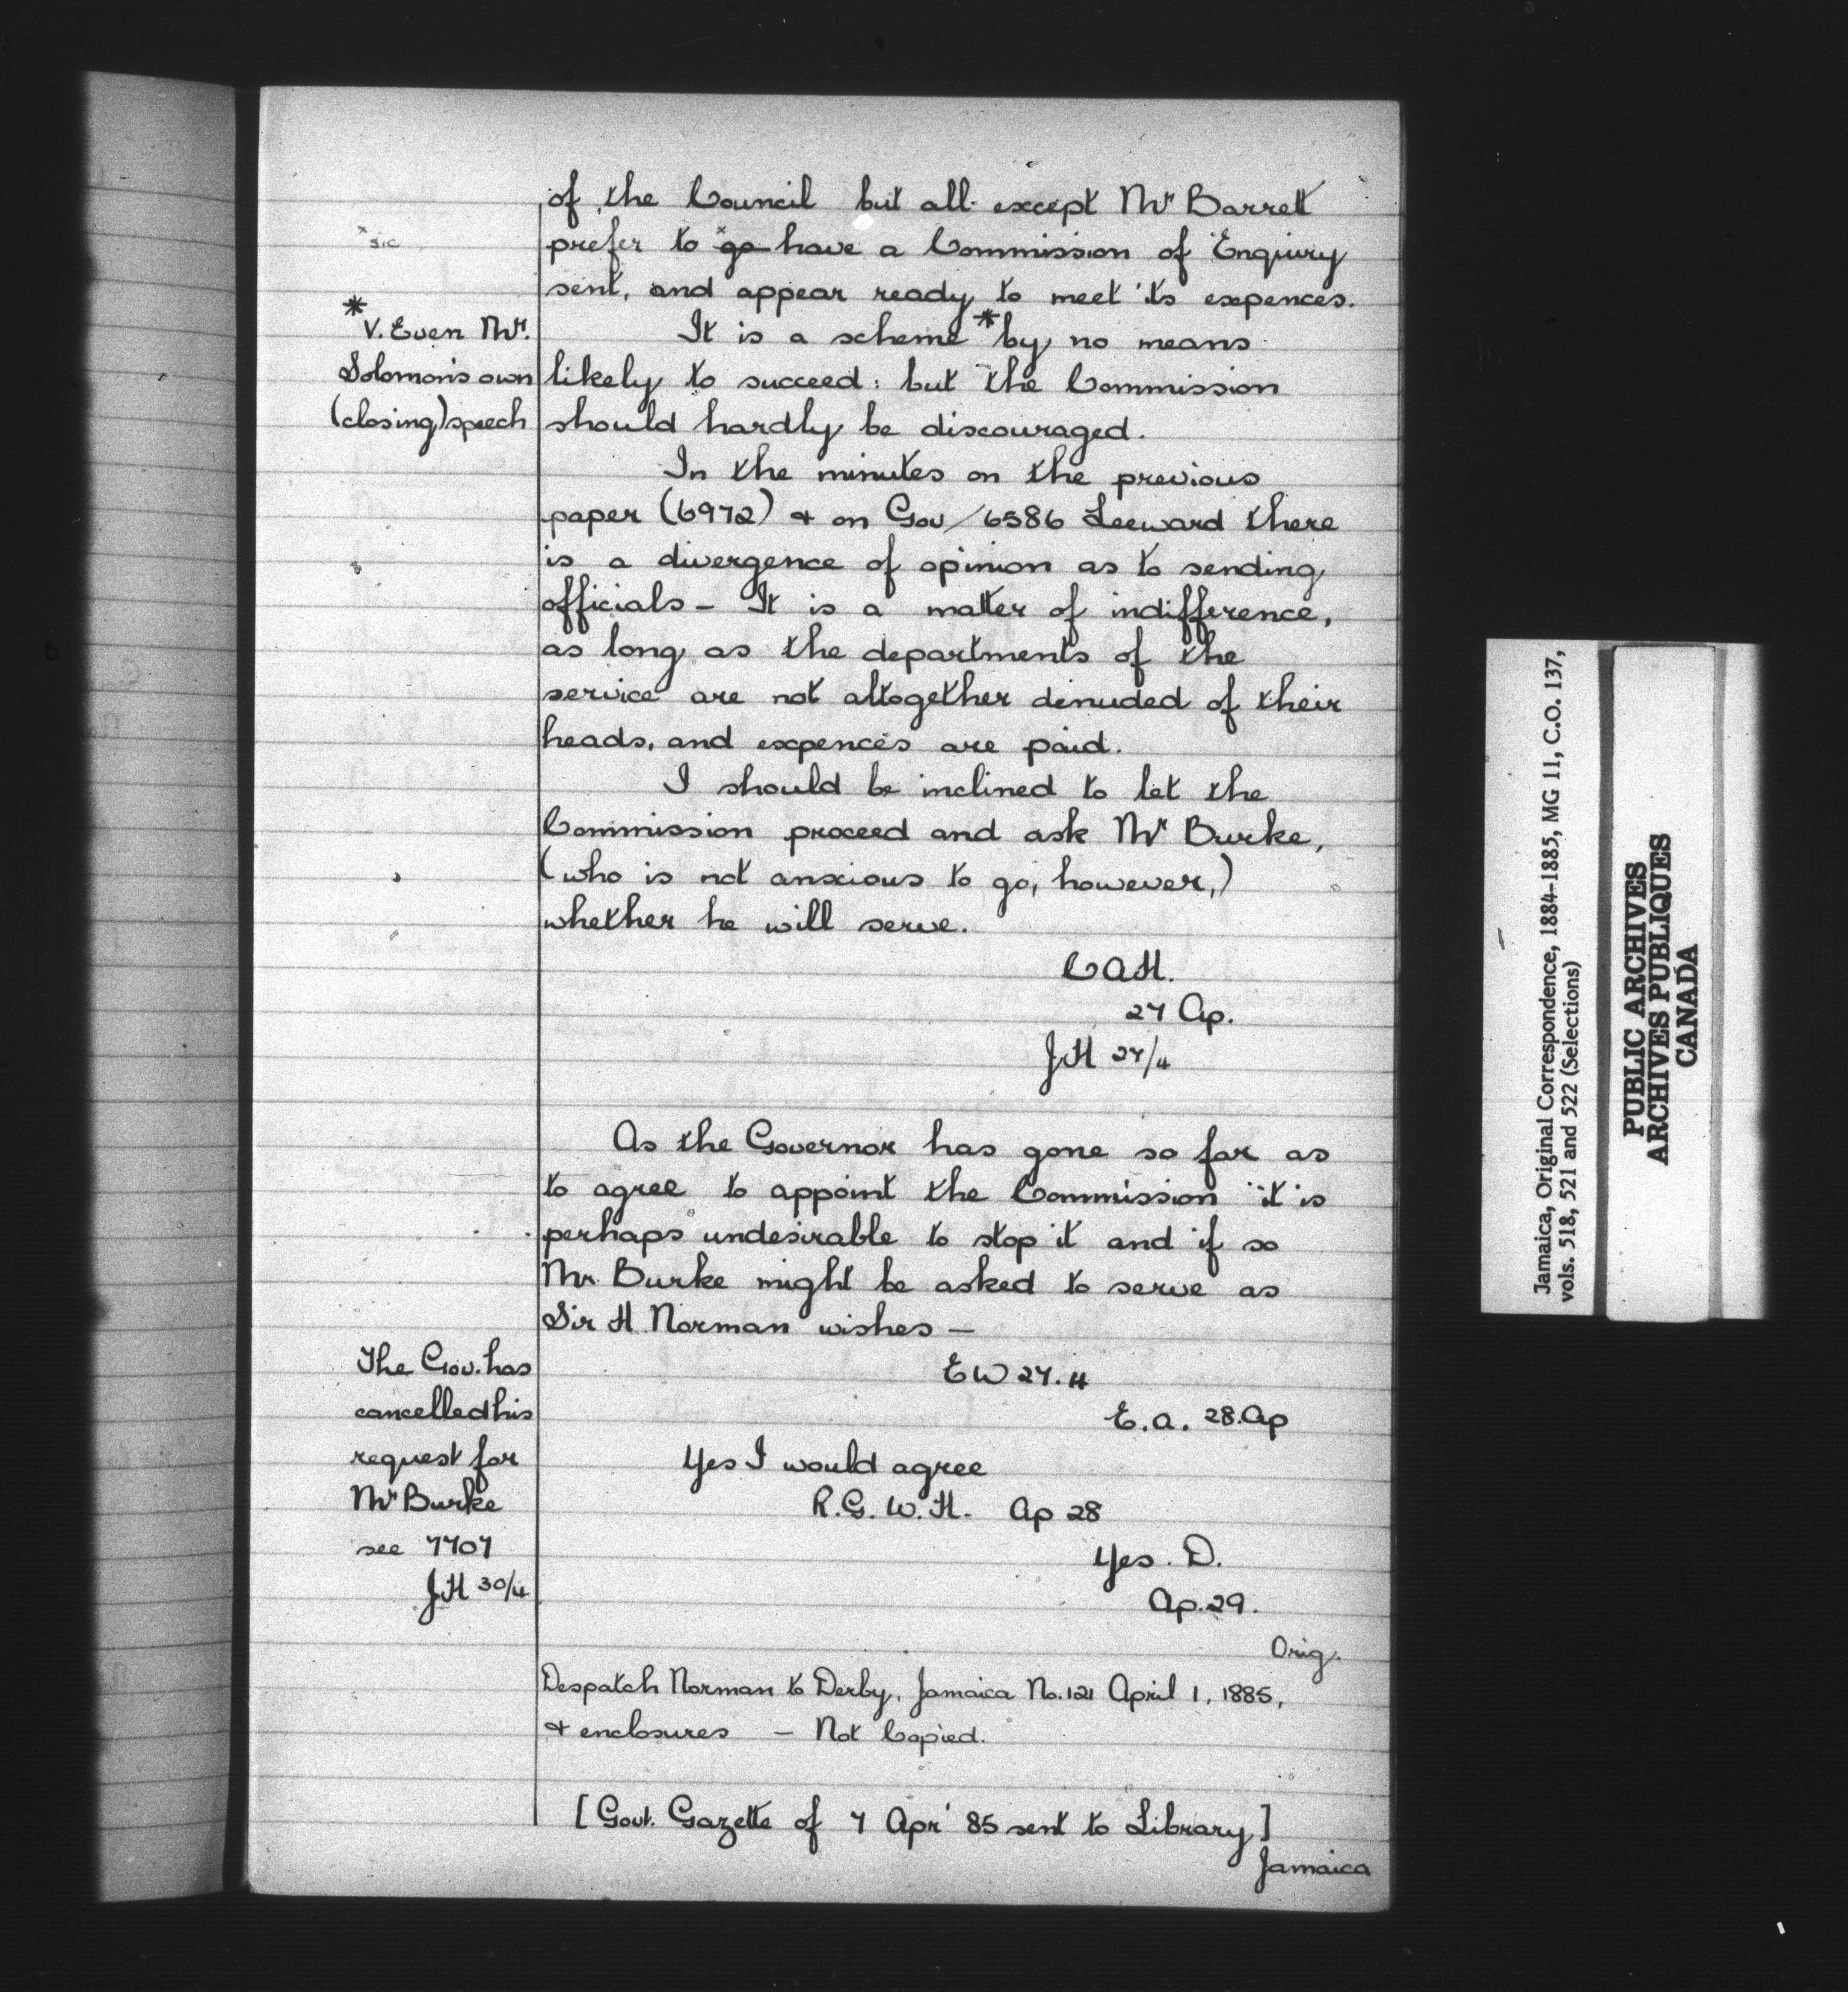 of the Council but all except Mr Barrett
* sic
prefer to *go have a Commission of Enquiry
sent, and appear ready to meet its expences.
* V. Even Mr.
Solomon's own
(closing) speech
It is a scheme * by no means
likely to succeed: but the Commission
should hardly be discouraged.
In the minutes on the previous
paper (6972) & on Gov/6586 Leeward there
is a divergence of opinion as to sending
officials – It is a matter of indifference,
as long as the departments of the
service are not altogether denuded of their
heads, and expences are paid.
I should be inclined to let the
Commission proceed and ask Mr Burke,
(who is not anxious to go, however,)
whether he will serve.
CAH.
27 Ap.
JH 27/4
As the Governor has gone so far as
to agree to appoint the Commission it is
perhaps undesirable to stop it and if so
Mr. Burke might be asked to serve as
Sir H Norman wishes –
EW 27.4
E.A. 28.Ap
Yes I would agree
R.G.W.H. Ap 28
Yes. D.
Ap. 29.
The Gov. has
cancelled his
request for
Mr Burke
see 7707
JH 30/4
Orig.
Despatch Norman to Derby, Jamaica No. 121 April 1, 1885,
& enclosures – Not Copied.
[Govt. Gazette of 7 Apr' 85 sent to Library]
Jamaica
Jamaica, Original Correspondence, 1884-1885, MG 11, C.O. 137,
vols. 518, 521 and 522 (Selections)
PUBLIC ARCHIVES
ARCHIVES PUBLIQUES
CANADA